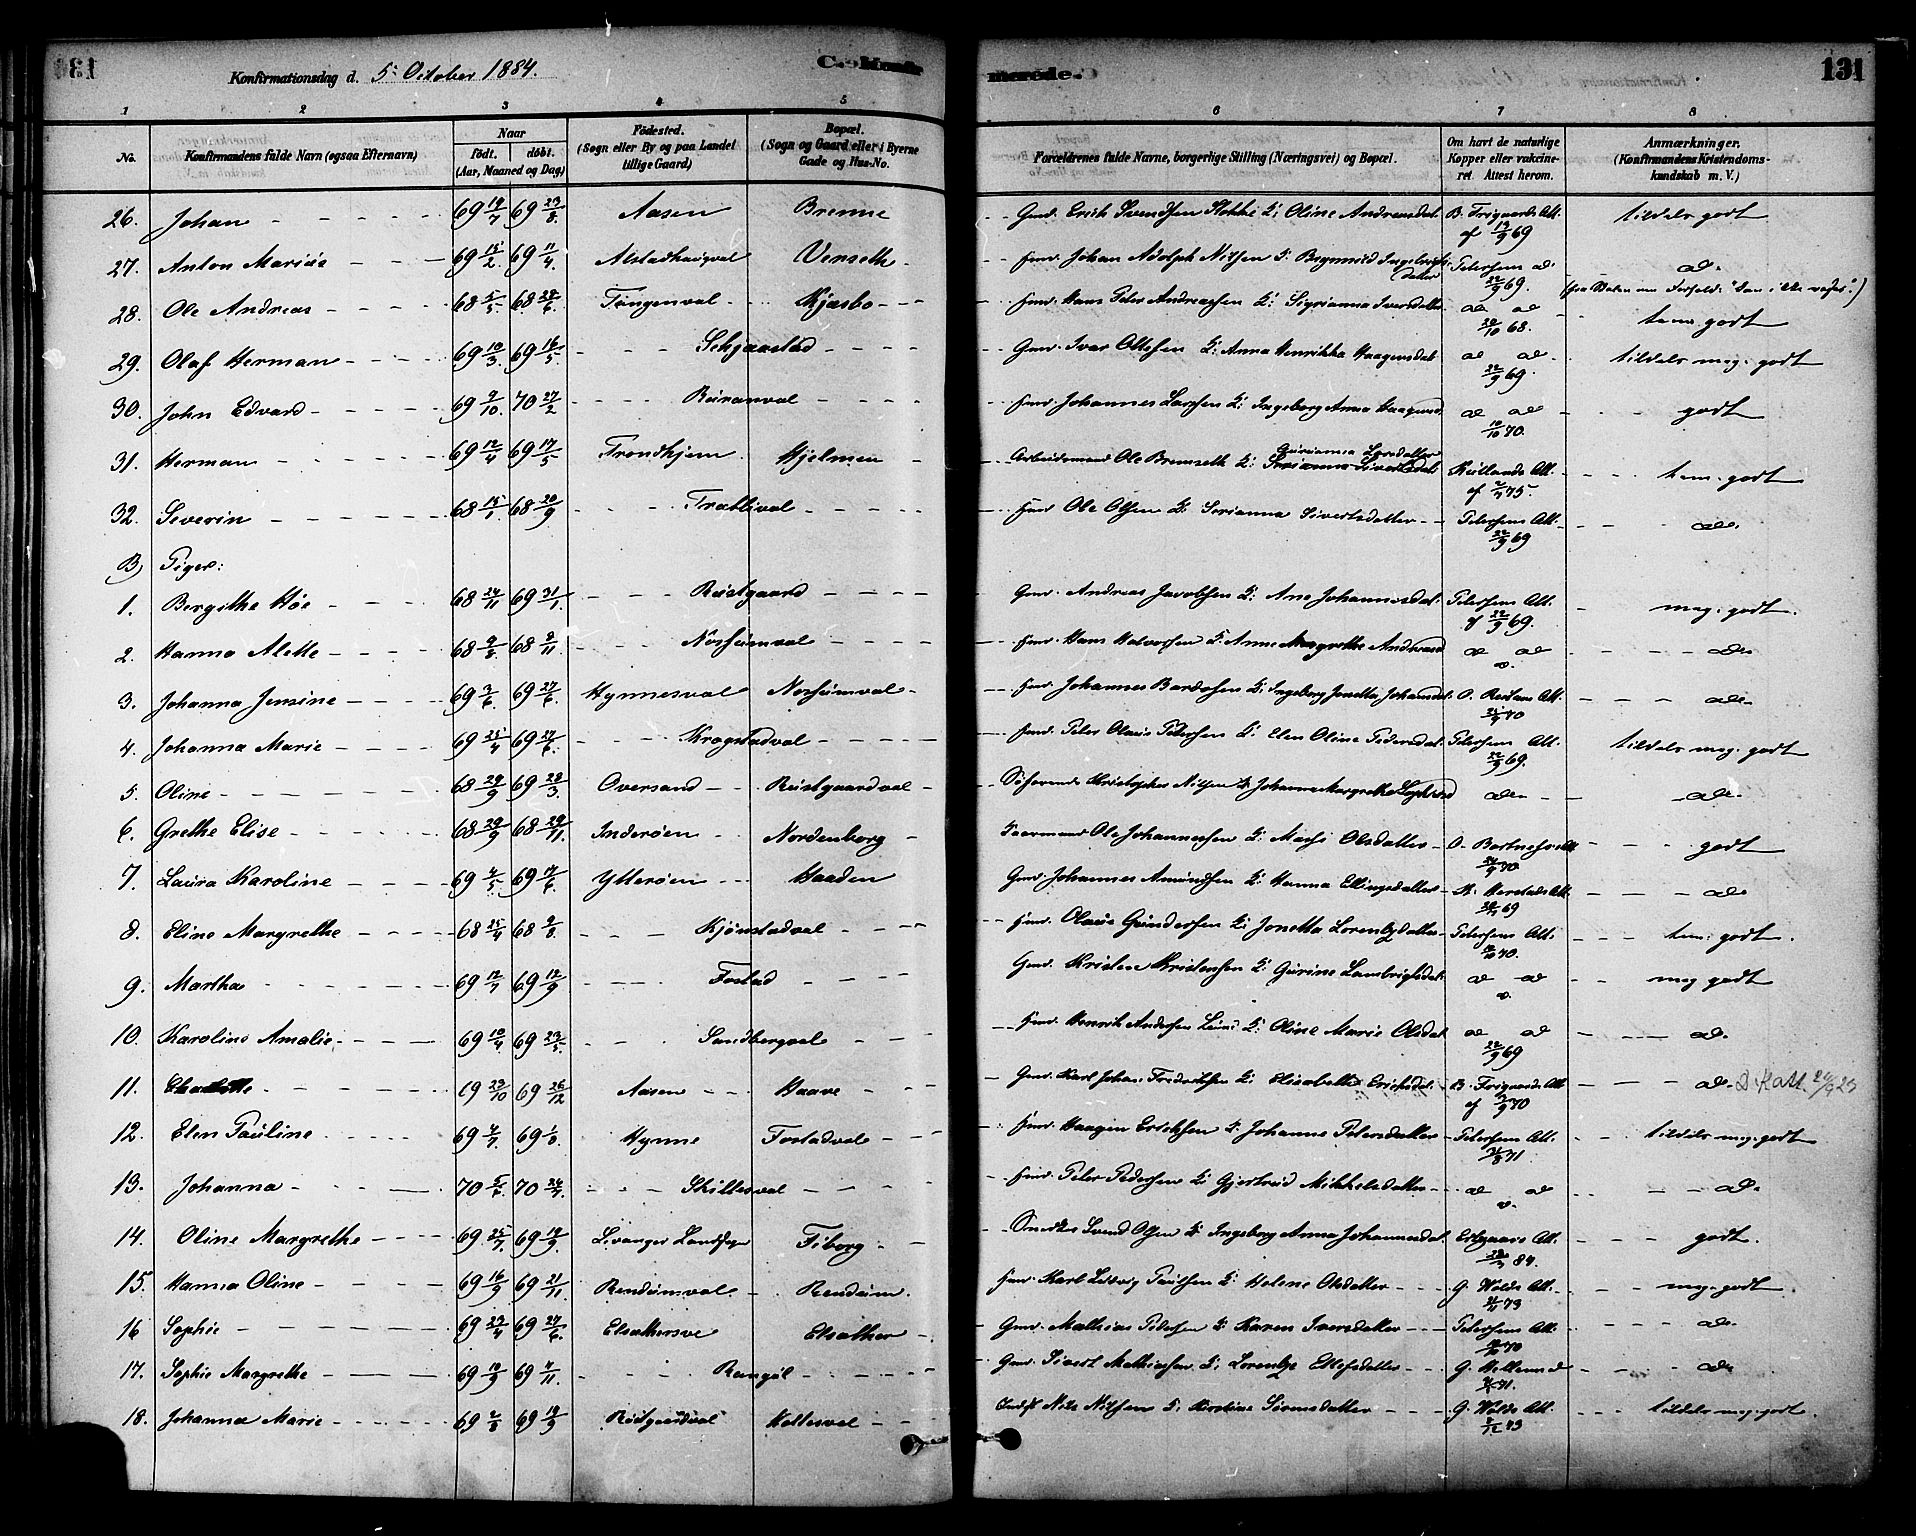 Konfirmationsdag d. 5 October 1884.
C. Konfirmerede.
131
1 2 3 4 5 6 7 8
No.
Konfirmandens fulde Navn (ogsaa Efternavn)
Naar født. døbt. (Aar, Maaned og Dag)
Fødested. (Sogn eller By og paa Landet tillige Gaard)
Bopæl. (Sogn og Gaard eller i Byerne Gade og Hus-No.
Forældrenes fulde Navne, borgerlige Stilling (Næringsvei) og Bopæl.
Om havt de naturlige Kopper eller vakcineret. Attest herom.
Anmærkninger. (Konfirmandens Kristendomskundskab m. V.)
26. Johan 69 19/7 69 23/8 Aasen Brenne Gmd. Erik Svendsen Stokke & Oline Andreasdat. B. Frigaards Att. af 13/9 69 tildels godt
27. Anton Marius 69 15/2 69 11/4 Alstadhaugval Venseth Hmd. Johan Adolph Nilsen & Bergitte Ingebrigtsdatter Petersens ad. 22/9 69. ad.
28. Ole Andreas 68 5/5 68 28/6 Tongenval Kjæsbo Hmd. Hans Peter Andreassen & Sigrianna Iversdatter ad ad 20/10 68. tem. godt
29. Olaf Herman 69 10/3 69 16/5 Sehjaastad Gmd. Ivar Ottesen & Anna Henrikka Haagensdat. ad ad 22/9 69. tildels meg. godt
30. John Edvard 69 9/10 70 27/2 Reiranval Hmd. Johannes Larssen & Ingeborg Anna Haagensd. ad ad 10/10 70. godt
31. Herman 69 12/4 69 17/5 Trondhjem Hjelmen Arbeidsmand Ole Bremseth & Gurianna Larsdatter Ketlands Att. af 2/7 75. tem. godt
32. Severin 68 15/1 68 20/9 Trætlival Hmd Ole Olsen & Serianna Sivertsdatter Petersens Att. 22/9 69 ad.
B) Piger:
1. Bergithe Høe 68 24/11 69 31/1 Reistgaard Gmd. Andreas Jacobsen & Ane Johannesdat. Petersens Att. af 22/9 69. meg. godt.
2. Hanna Alette 68 9/8 68 8/11 Norheimval Hmd. Hans Halvorsen & Anne Margrethe Andreasd ad ad ad
3. Johanna Jensine 69 3/6 69 27/6 Hynnesval Norheimval Hmd. Johannes Bardosen & Ingeborg Jonetta Johansdat. O. Reitans Att. 25/9 70 ad.
4. Johanna Marie 69 25/4 69 27/6 Krogstadval Hmd. Peter Olaus Petersen & Elen Oline Pedersdat. Petersens Att. 22/9 69. tildels meg. godt
5. Oline 68 29/9 69 28/3 Oversand Reistgaardval Søfarende Kristopher Nilsen & Johanna Margrethe ad ad.
6. Grethe Elise 68 29/9 68 29/11 Inderøen Nordenborg Ole Johannessen & Masi Olsdatter O. Bartnes Att. 24/9 70 godt
7. Laura Karoline 69 4/5 69 14/6 Ytterøen Haaden Gmd. Johannes Amundsen & Hanna Ellingsdatter Att. 69 ad.
8. Eline Margrethe 68 25/4 68 9/8 Kjønstadval Hmd. Olaus Gundersen & Jonetta Lorentzdatter Petersens Att. 12/10 70. tem. godt.
9. Martha 69 12/7 69 12/9 Fostad Gmd. Kristen Kristensen & Gurine Lambrigtsdat. ad ad meg godt
10. Karoline Amalie 69 10/4 69 23/5. Sandbergval Hmd. Henrik Andersen & Oline Marie Olsdat. ad ad 22/9 69 ad.
11. 69 23/10 69 26/12 Aasen Haave Gmd. Karl Johan Fredriksen & Elisabeth Eriksdat. B. Frigaards Att. af 70 ad. D. Katt.
12. Elen Pauline 69 4/7 69 1/8 Hynne Fostadval Hmd. Haagen Eriksen & Johanna Petersdatter Petersens Att. 71 tildels meg. godt
13. Johanna 70 5/6 70 24/7 Skillesval Hmd. Peter Pedersen & Gjertrud Mikkelsdatter ad ad ad.
14. Oline Margrethe 69 25/7 69 19/9 Levanger Landsogn Fiborg Smeden Svend Olsen & Ingeborg Anna Johannesdat. Att. 84. godt.
15. Hanna Oline 69 16/9 69 21/11 Rendumval Rendum. Hmd. Karl Ludvig Paulsen & Helene Olsdatter G. Wolds Att. 73 meg. godt.
16 Sophie 69 23/4 69 27/6 Elsather Gmd. Mathias Pedersen & Karen Iversdatter Petersens Att. 12/10 70 ad.
17. Sophie Margrethe 69 19/9 69 11/11 Gmd. Sivert Mathiassen & Lorentze Ellefsdatter G. 71. ad
18. Johanna Marie 69 2/8 69 19/9 Reistgaardval Holtesval Nils Nilsen & Kirstine Sørensdatter G. Wolds Att. 2/12 73 tildels meg. godt.